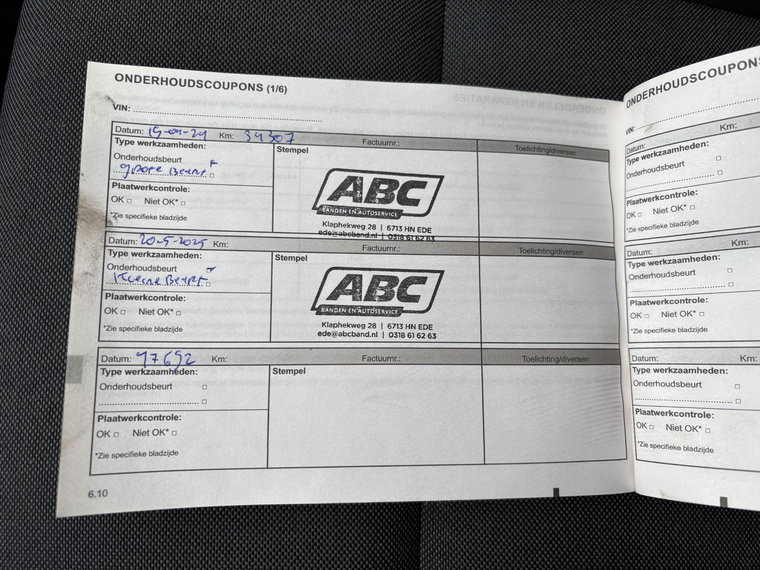 ONDERHOUDSCOUPONS (1/6)
VIN:
Datum: Km: 34307 Factuurnr.: Toelichting/diversen
Type werkzaamheden: Stempel
Onderhoudsbeurt
grote Beurt
Plaatwerkcontrole:
OK □ Niet OK* □
*Zie specifieke bladzijde
ABC
BANDEN EN AUTOSERVICE
Klaphekweg 28 | 6713 HN EDE
ede@abcband.nl | 0318 61 62 63
Datum: 20-5-2025 Km: Factuurnr.: Toelichting/diversen
Type werkzaamheden: Stempel
Onderhoudsbeurt
Kleine Beurt
Plaatwerkcontrole:
OK □ Niet OK* □
*Zie specifieke bladzijde
ABC
BANDEN EN AUTOSERVICE
Klaphekweg 28 | 6713 HN EDE
ede@abcband.nl | 0318 61 62 63
Datum: 47692 Km: Factuurnr.: Toelichting/diversen
Type werkzaamheden: Stempel
Onderhoudsbeurt □
Plaatwerkcontrole:
OK □ Niet OK* □
*Zie specifieke bladzijde
6.10
ONDERHOUDSCOUPONS
VIN:
Datum: Km:
Type werkzaamheden:
Onderhoudsbeurt □
Plaatwerkcontrole:
OK □ Niet OK* □
*Zie specifieke bladzijde
Datum: Km:
Type werkzaamheden:
Onderhoudsbeurt □
Plaatwerkcontrole:
OK □ Niet OK* □
*Zie specifieke bladzijde
Datum: Km:
Type werkzaamheden:
Onderhoudsbeurt □
Plaatwerkcontrole:
OK □ Niet OK* □
*Zie specifieke bladzijde